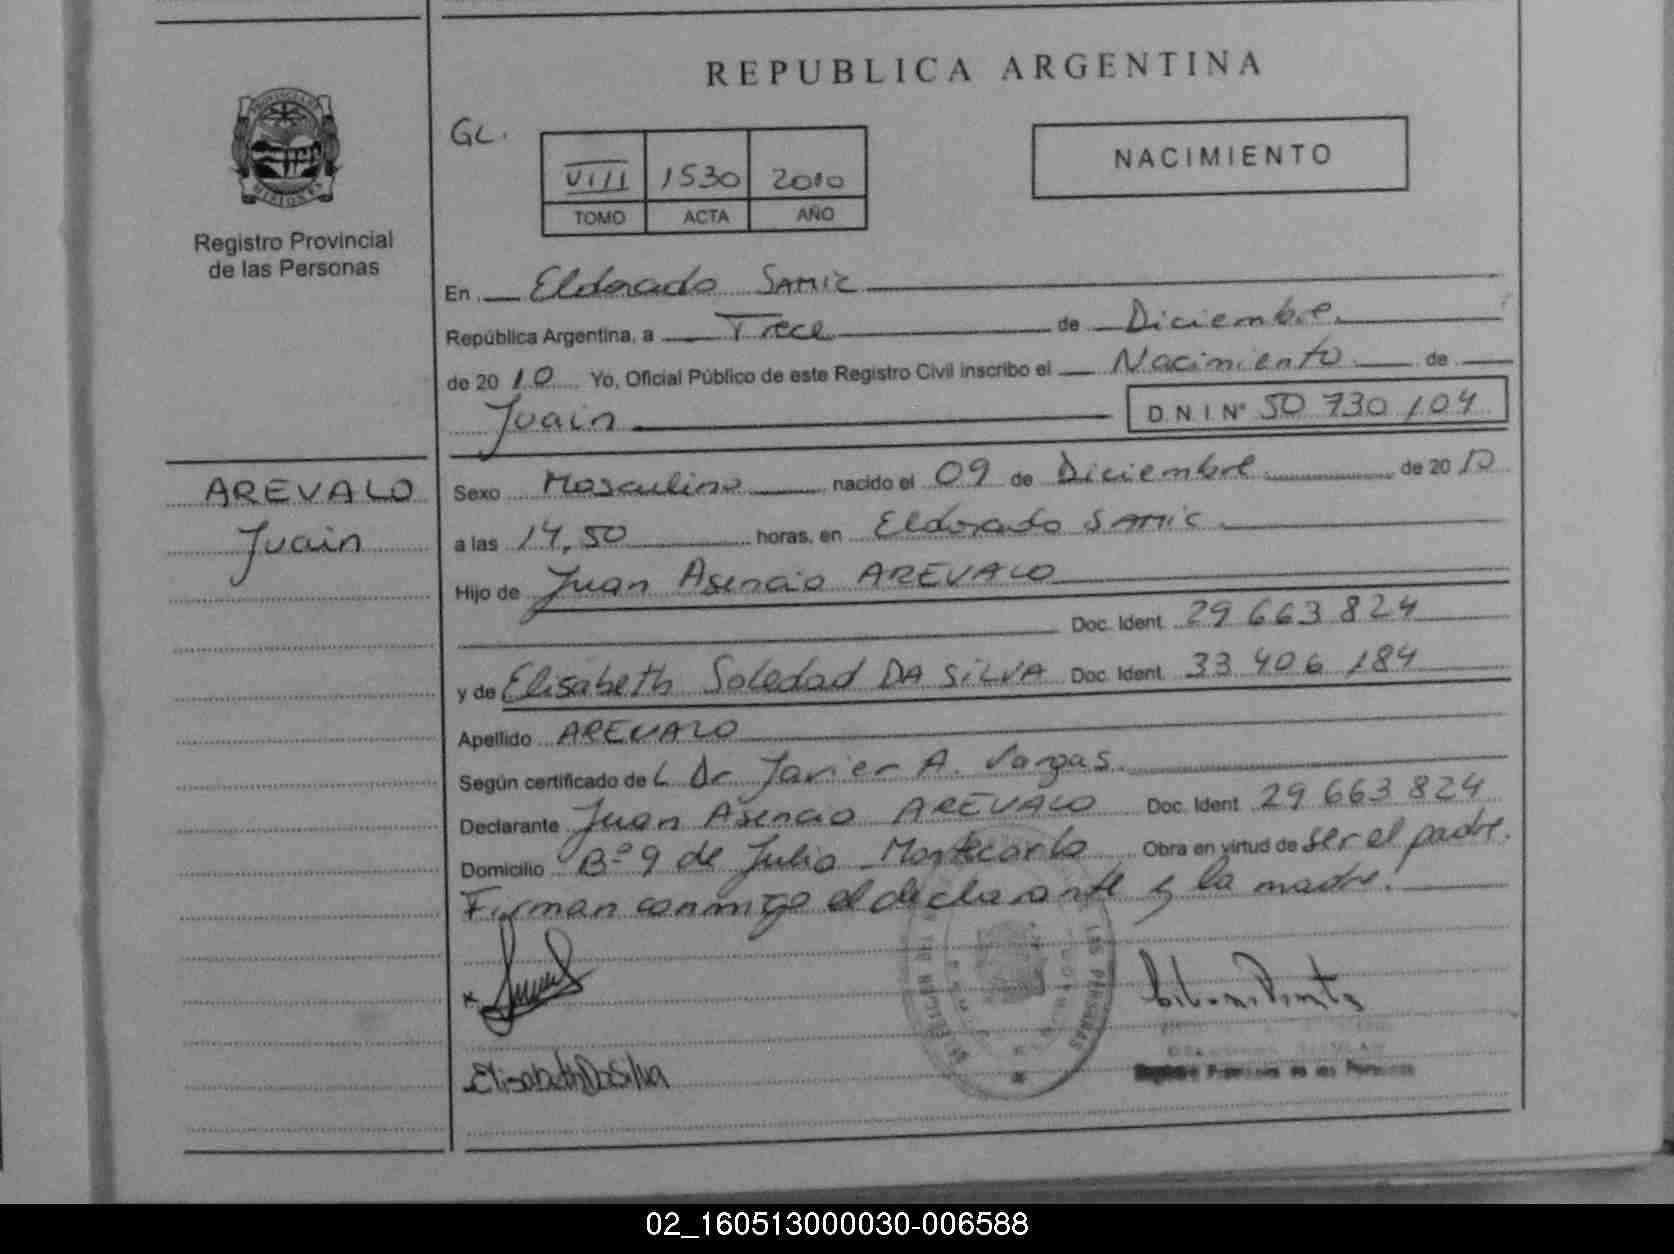 REPUBLICA ARGENTINA
PROVINCIA DE
MISIONES
Registro Provincial
de las Personas
GL.
VIII 1530 2010
TOMO ACTA AÑO
NACIMIENTO
En Eldorado SAMIC
República Argentina, a Trece de Diciembre
de 2010 Yo, Oficial Público de este Registro Civil inscribo el Nacimiento de
Juain D.N.I. Nº 50 730 104
AREVALO
Juain
Sexo Masculino nacido el 09 de Diciembre de 2010
a las 14,50 horas, en Eldorado SAMIC
Hijo de Juan Asencio AREVALO
Doc. Ident. 29 663 824
y de Elisabeth Soledad DA SILVA Doc. Ident. 33 406 184
Apellido AREVALO
Según certificado de L Dr Javier A. Vargas.
Declarante Juan Asencio AREVALO Doc. Ident. 29 663 824
Domicilio Bº 9 de Julio Montecarlo Obra en virtud de ser el padre.
Firman conmigo el declarante y la madre.
Elisabeth Da Silva
LAS PERSONAS
Registro Provincial de las Personas
02_160513000030-006588